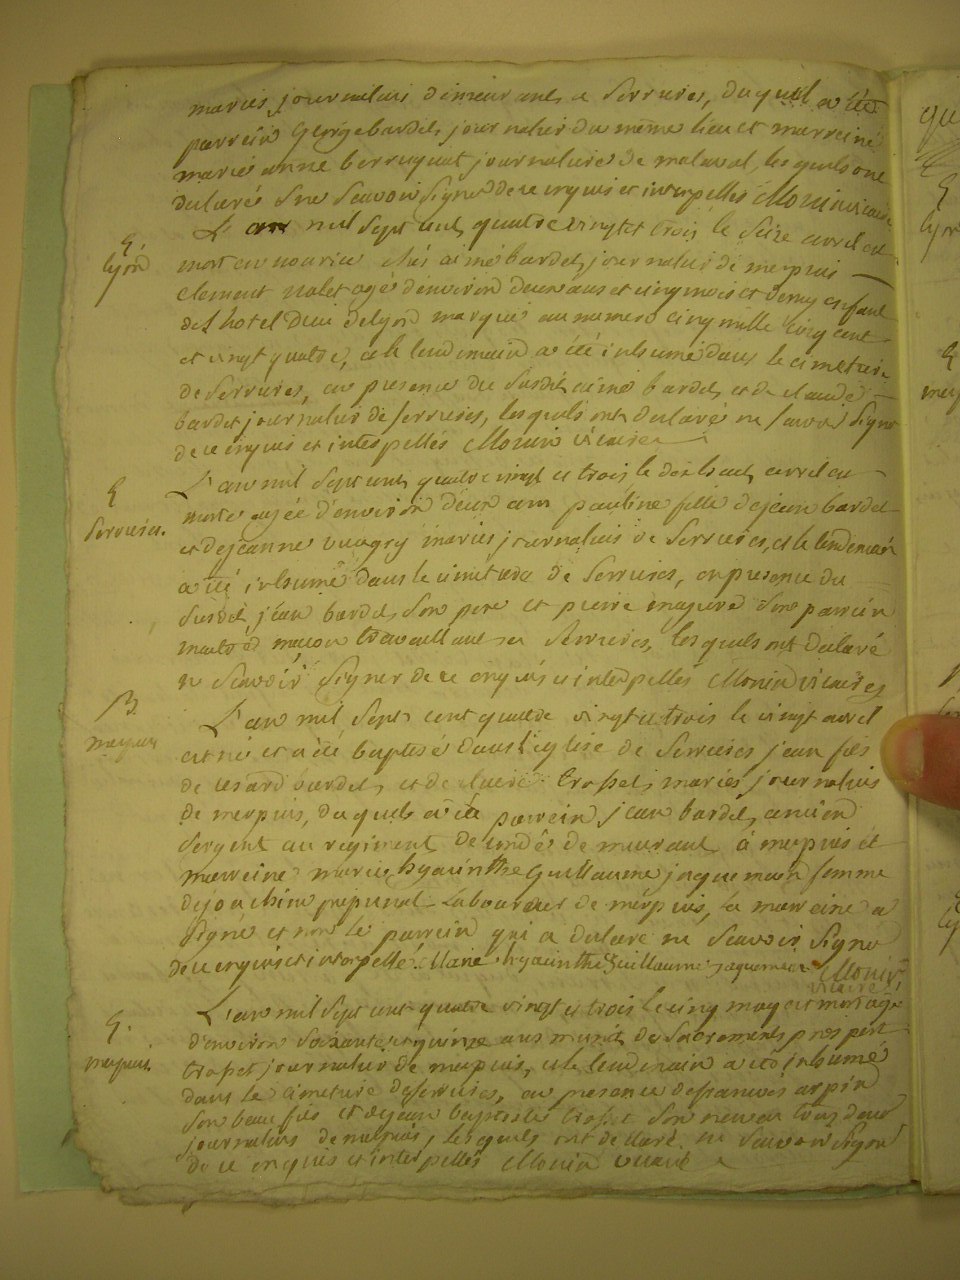 mariés journaliers demeurants a Serrieres, duquel a été
parrein George bardel, journalier du même lieu et marreine
marie anne berruquat journaliere de malaval, lesquels ont
declaré ne scavoir signer de ce enquis et interpellés Monin vicaire
L'an mil sept cent quatre vingt et trois le seize avril est
S.
lyon
mort en nourice chés aimé bardel, journalier de merpuis
clement valet agé d'environ deux ans et cinq mois et demy enfant
de l'hotel Dieu de lyon marqué au numero cinq mille cinq cent
et vingt quatre, et le lendemain a été inhumé dans le cimetiere
de Serrieres, en presence du susdit aimé bardel, et de claude
bardel journalier de Serrieres, lesquels ont declaré ne scavoir signer
de ce enquis et interpellés Monin vicaire
S
Serrieres.
L'an mil sept cent quatre vingt et trois le dix huit avril est
morte agée d'environ deux ans pauline fille de jean bardel
et de jeanne vuagey mariés journaliers de Serrieres, et le lendemain
a été inhumé dans le cimetiere de Serrieres, en presence du
susdit jean bardel, son pere et pierre son parrein
maitre maçon travaillant a Serrieres, lesquels ont declaré
ne scavoir signer de ce enquis et interpellés Monin vicaire
B.
merpuis
L'an mil sept cent quatre vingt et trois le vingt avril
est né et a été baptisé dans l'eglise de Serrieres jean fils
de cesard bardel, et de claire trosset, mariés journaliers
de merpuis, duquel a été parrein jean bardel, ancien
sergent au regiment de condé demeurant à merpuis et
marreine marie hyacinthe Guillaume jaquemain femme
de joachim laboureur de merpuis, la marreine a
signé et non le parrein qui a declaré ne scavoir signer
de ce enquis et interpellé. Marie hyacinthe Guillaume jaquemain Monin
vicaire
S.
merpuis.
L'an mil sept cent quatre vingt et trois le cinq may est mort agé
d'environ soixante et quinze ans munit des sacrements
trosset journalier de merpuis, et le lendemain a été inhumé
dans le cimetiere de Serrieres, en presence de françois arpin
son beau fils et de jean baptiste trosset son neveu tous deux
journaliers de merpuis, lesquels ont declaré ne scavoir signer
de ce enquis et interpellés Monin vicaire